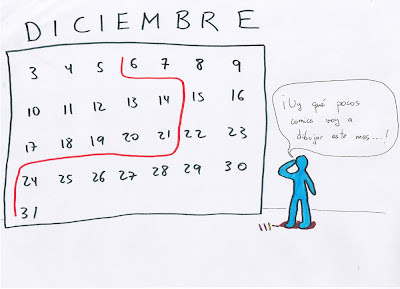 DICIEMBRE
3 4 5 6 7 8 9
10 11 12 13 14 15 16
17 18 19 20 21 22 23
24 25 26 27 28 29 30
31
¡Uy qué pocos
comics voy a
dibujar este mes....!